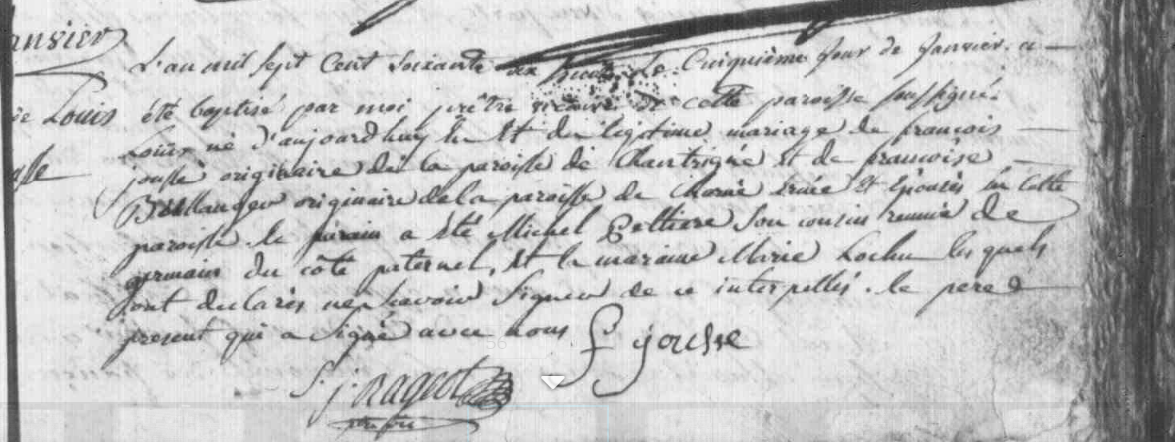 anvier
L'an mil sept cent soixante dix le Cinquième jour de Janvier a
Louis été baptisé par moi prêtre vicaire de cette paroisse soussigné
Louis né d'aujourdhuy du legitime mariage de françois
jousse originaire de la paroisse de Chantrigné et de françoise
Boullanger originaire de la paroisse de mariée et épousés en cette
paroisse le parain a été Michel Peltiere son cousin remué de
germain du côté paternel, et la maraine Marie Lochu lesquels
ont declarés ne sçavoir signer de ce interpellés. le pere
present qui a signé avec nous
f jousse
j. nageot
56